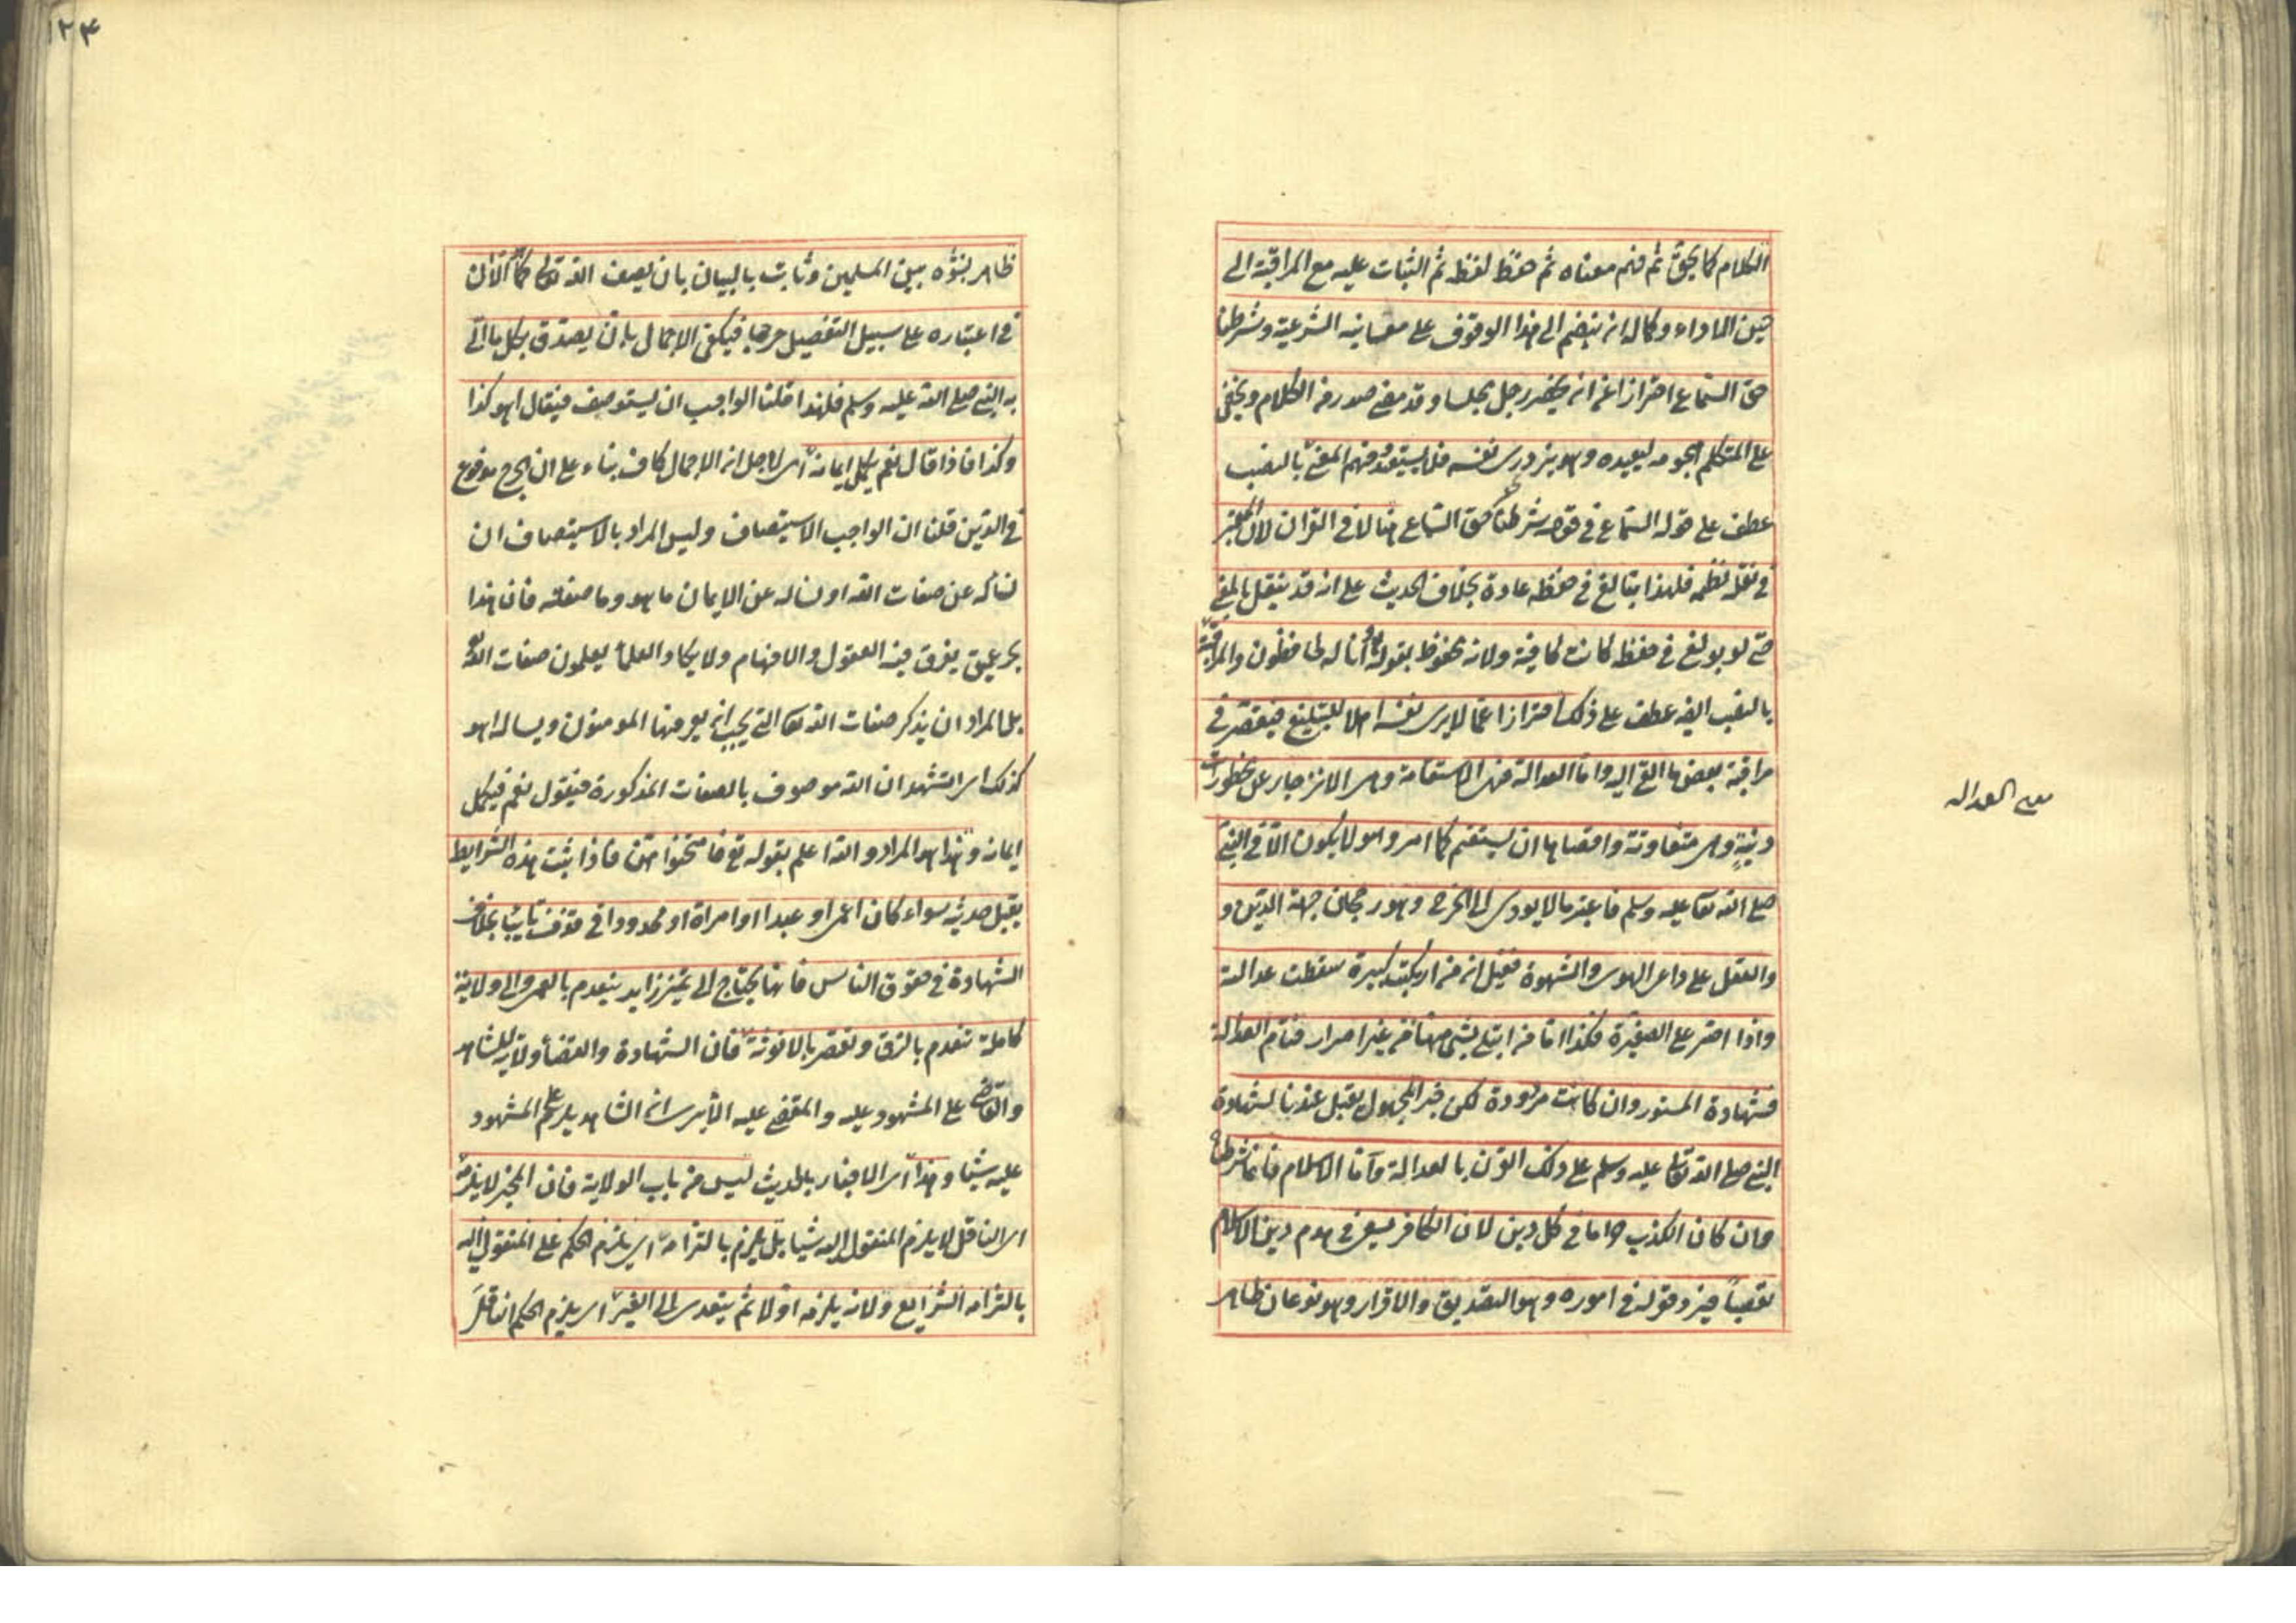 الكلام كما يحق ثم فهم معناه ثم حفظ لفظه ثم الثبات عليه مع المراقبة الى
حين الاداء وكماله ان ينضم الى هذا الوقوف على معانيه الشرعية وشرطنا
حق السماع احترازا عن ان يحضر رجل مجلسا وقد مضى صدر من الكلام ويخفى
على المتكلم هجومه ليعيده وهو يزدري نفسه فلا يستعيده وفهم المعنى بالنصب
عطف على قوله السماع في قوله شرطنا حق السماع هنا لا في القران لان المعتبر
في نقله نظمه فلهذا يبالغ في حفظه عادة بخلاف الحديث على انه قد ينقل بالمعنى
حتى لو بولغ في حفظه كانت كافية ولانه محفوظ بقوله تعالى وانا له لحافظون والمراقبة
بالنصب ايضا عطف على ذلك احترازا عما لا يرى نفسه اهلا للتبليغ فيقصر في
مراقبة بعض ما القي اليه واما العدالة فهي الاستقامة وهي الانزجار عن محظورات
دينية وهي متفاوتة واقصاها ان يستقيم كما امر وهو لا يكون الا في النبي
صلى الله تعالى عليه وسلم فاعتبر ما لا يؤدي الى الحرج وهو رجحان جهة الدين و
والعقل على داعي الهوى والشهوة فقيل ان من ارتكب كبيرة سقطت عدالته
واذا اصر على الصغيرة فكذا اما من ابتلي بشيء منها من غير اصرار فتام العدالة
فشهادة المستور وان كانت مردودة لكن خبر المجهول يقبل عندنا لشهادة
النبي صلى الله تعالى عليه وسلم على ذلك القرن بالعدالة واما الاسلام فانما شرطناه
وان كان الكذب حراما في كل دين لان الكافر يسعى في هدم دين الاسلام
تعصبا فيرد قوله في اموره وهو التصديق والاقرار وهو نوعان ظاهر
معنى العدالة
١٢٤
ظاهر بنشوه بين المسلمين وثابت بالبيان بان يصف الله تعالى كما الا ان
في اعتباره على سبيل التفصيل حرجا فيكفي الاجمال بان يصدق بكل ما اتى
به النبي صلى الله عليه وسلم فلهذا قلنا الواجب ان يستوصف فيقال اهو كذا
وكذا فاذا قال نعم يكمل ايمانه اي لاجل ان الاجمال كاف بناء على ان الحرج مدفوع
في الدين قلنا ان الواجب الاستيصاف وليس المراد بالاستيصاف ان
نساله عن صفات الله او نساله عن الايمان ما هو وما صفته فان هذا
بحر عميق يغرق فيه العقول والافهام ولا يكاد العلماء يعلمون صفات الله تعالى
بل المراد ان يذكر صفات الله تعالى التي يجب ان يعرفها المومنون ويساله اهو
كذلك اي اتشهد ان الله موصوف بالصفات المذكورة فيقول نعم فيكمل
ايمانه وهذا هو المراد والله اعلم بقوله تع فامتحنوهن فاذا ثبت هذه الشرايط
يقبل حديثه سواء كان اعمى او عبدا او امراة او محدودا في قذف تايبا بخلاف
الشهادة في حقوق الناس فانها يحتاج الى تميز زايد ينعدم بالعمى والى ولاية
كاملة تنعدم بالرق وتقصر بالانوثة فان الشهادة والقضاء ولاية للشاهد
والقاضي على المشهود عليه والمقضي عليه الا يرى ان الشاهد يلزم على المشهود
عليه شيئا وهذا اي الاخبار بالحديث ليس من باب الولاية فان المخبر لا يلزمه
اي الناقل لا يلزم المنقول اليه شيئا بل يلزم بالتزامه اي يلزم الحكم على المنقول اليه
بالتزامه الشرايع ولانه يلزمه اولا ثم يتعدى الى الغير اي يلزم الحكم الناقل